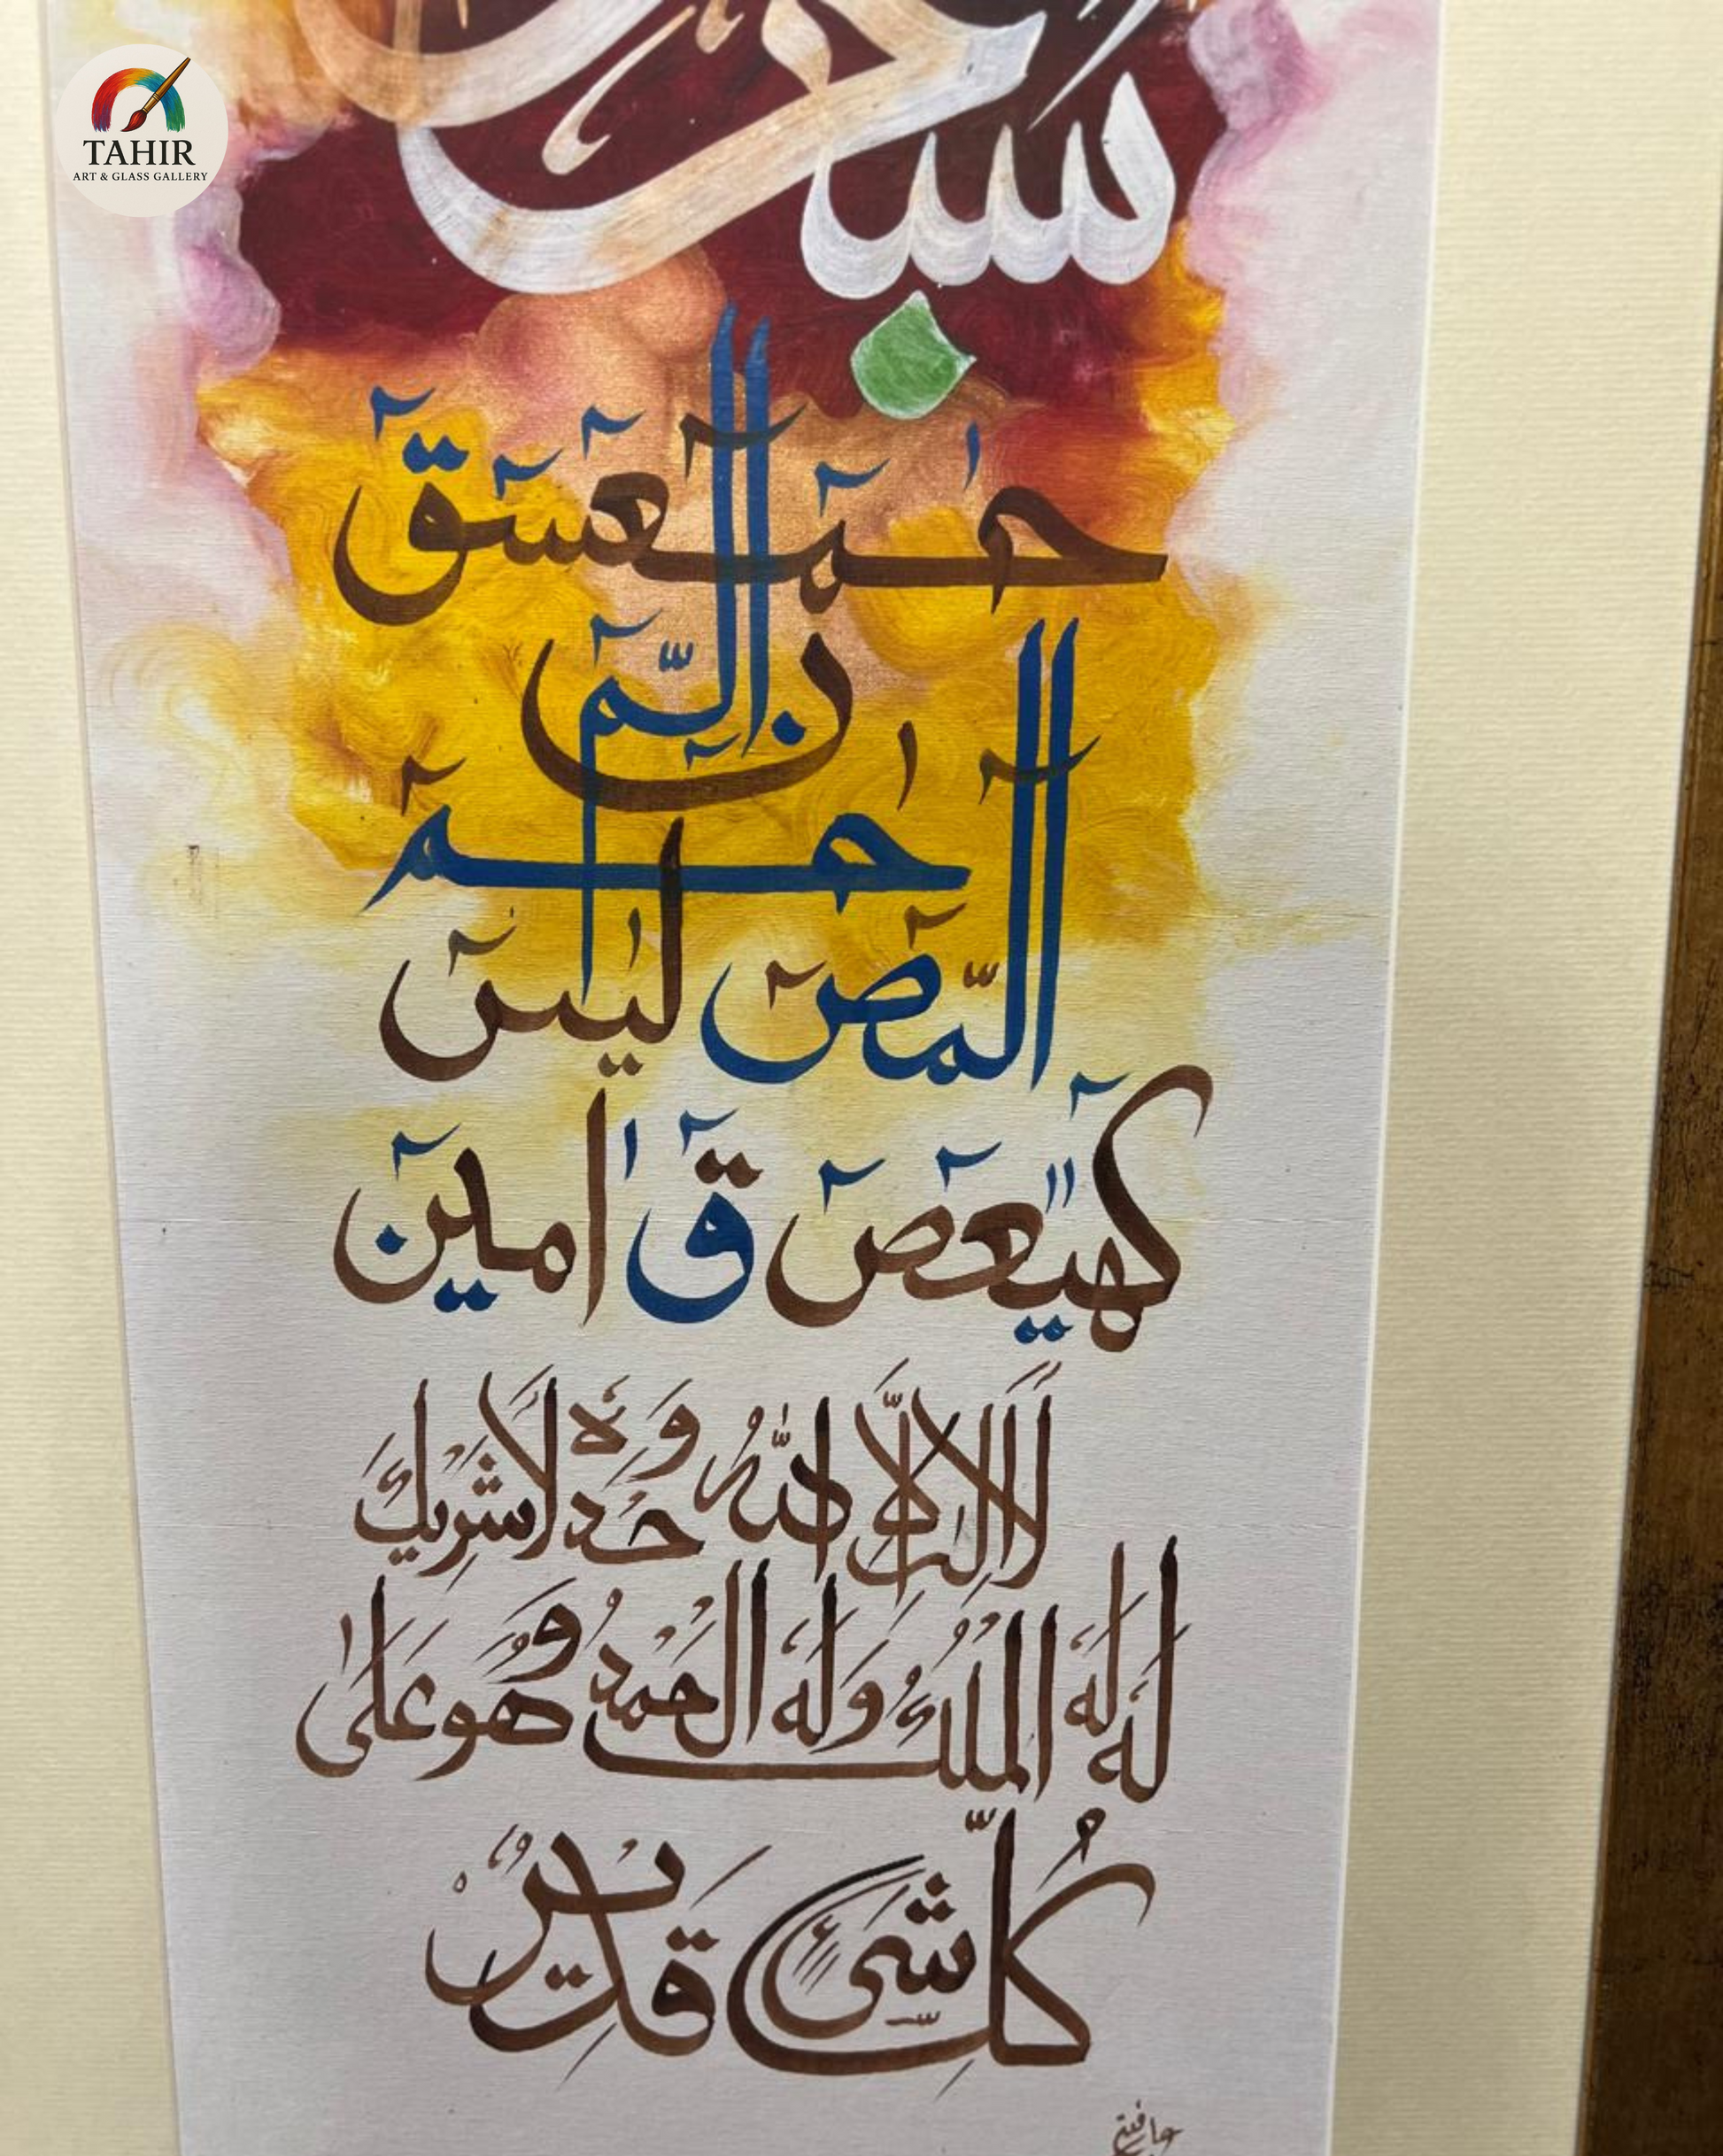 TAHIR
ART & GLASS GALLERY
حٰمٓعٓسٓقٓ
نٓ الٓمّٓ
حٰمٓ
الٓمّٓصٓ ليٰسٓ
كٓهٰيٰعٓصٓ قٓ اٰمين
لَا اِلٰهَ اِلَّا اللّٰهُ وَحْدَهٗ لَا شَرِيْكَ
لَهٗ لَهُ الْمُلْكُ وَلَهُ الْحَمْدُ وَهُوَ عَلٰى
كُلِّ شَيْءٍ قَدِيْرٌ